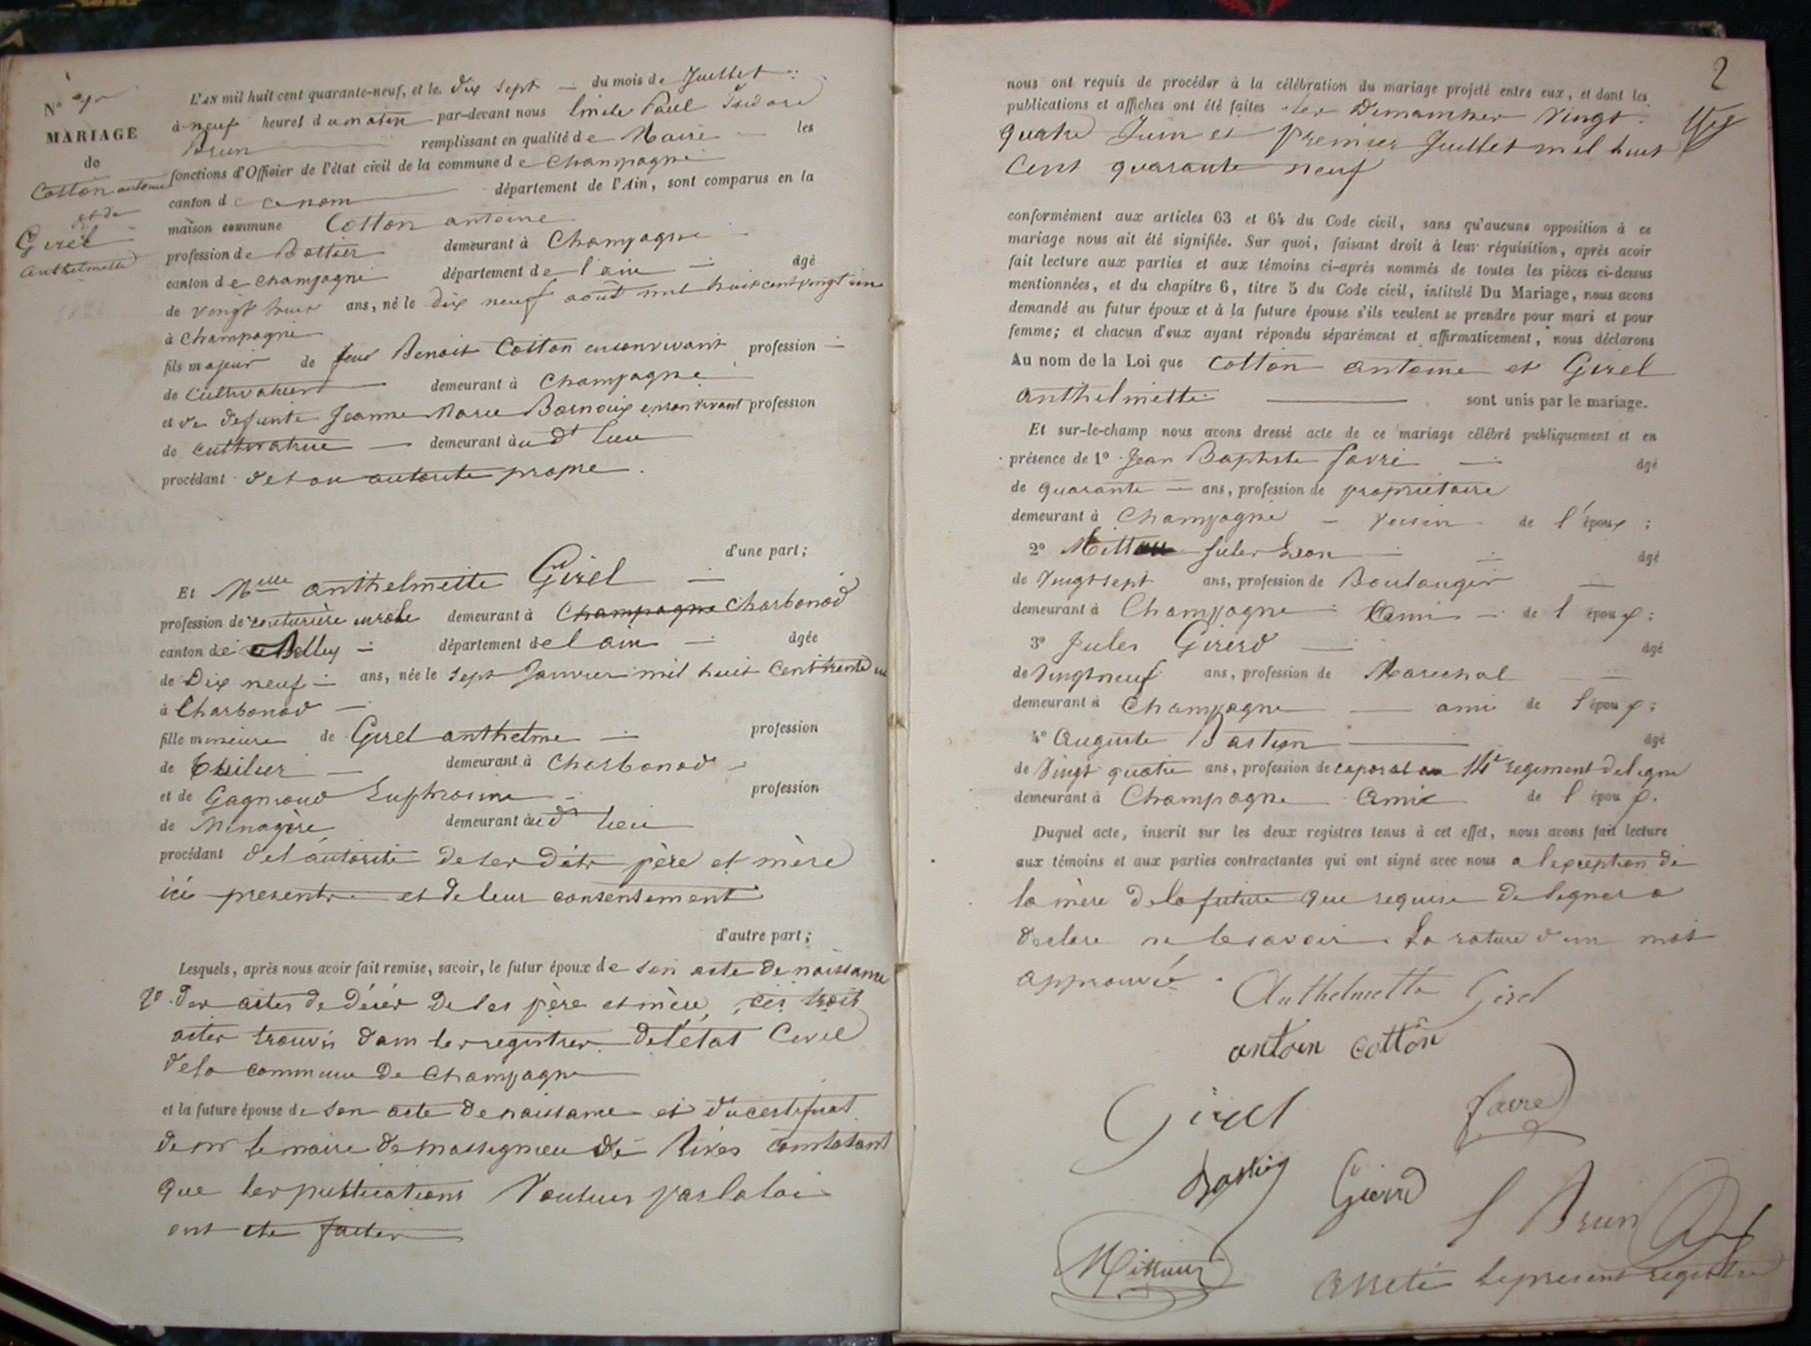 N°
MARIAGE
de
Cotton antoine
et de
Girel
anthelmette
L'AN mil huit cent quarante-neuf, et le dix sept du mois de Juillet
à neuf heures du matin par-devant nous Emile Paul Isidore
Brun remplissant en qualité de Maire les
fonctions d'Officier de l'état civil de la commune de Champagne
canton d ce nom département de l'Ain, sont comparus en la
maison commune Cotton antoine
profession de Bottier demeurant à Champagne
canton de Champagne département de l'ain âgé
de vingt huit ans, né le dix neuf août mil huit cent vingt un
à Champagne
fils majeur de feu Benoit Cotton en son vivant profession
de Cultivateur demeurant à Champagne
et de defunte Jeanne Marie en son vivant profession
de cultivatrice demeurant au dt lieu
procédant de son autorité propre.
d'une part;
Et Melle anthelmette Girel
profession de couturière en robe demeurant à Champagne Charbonod
canton de Belley département de l ain âgée
de Dix neuf ans, née le sept Janvier mil huit cent trente
à Charbonod
fille mineure de Girel anthelme profession
de Tuilier demeurant à Charbonod
et de Gagnoud Euphrosine profession
de Menagère demeurant au dt lieu
procédant de l'autorité de ses dits père et mère
ici presents et de leur consentement
d'autre part;
Lesquels, après nous avoir fait remise, savoir, le futur époux de son acte de naissance
2° des actes de décès de ses père et mère, ces trois
actes trouvés dans les registres de l'état Civil
de la commune de Champagne
et la future épouse de son acte de naissance et du certificat
de mr le maire de massignieu de Rives constatant
que les publications Voulues par la loi
ont été faites
2
nous ont requis de procéder à la célébration du mariage projeté entre eux, et dont les
publications et affiches ont été faites les Dimanches Vingt
quatre Juin et premier Juillet mil huit
Cent quarante neuf
conformément aux articles 63 et 64 du Code civil, sans qu'aucune opposition à ce
mariage nous ait été signifiée. Sur quoi, faisant droit à leur réquisition, après avoir
fait lecture aux parties et aux témoins ci-après nommés de toutes les pièces ci-dessus
mentionnées, et du chapitre 6, titre 5 du Code civil, intitulé Du Mariage, nous avons
demandé au futur époux et à la future épouse s'ils veulent se prendre pour mari et pour
femme; et chacun d'eux ayant répondu séparément et affirmativement, nous déclarons
Au nom de la Loi que Cotton antoine et Girel
anthelmette sont unis par le mariage.
Et sur-le-champ nous avons dressé acte de ce mariage célébré publiquement et en
présence de 1° Jean Baptiste favre âgé
de quarante ans, profession de propriétaire
demeurant à Champagne voisin de l'époux;
2° Jules Leon âgé
de Vingt sept ans, profession de Boulanger
demeurant à Champagne ami de l'époux;
3° Jules Girerd âgé
de Vingt neuf ans, profession de Marechal
demeurant à Champagne ami de l'époux;
4° Auguste Bastion âgé
de Vingt quatre ans, profession de caporal au 14e regiment de ligne
demeurant à Champagne Amie de l'époux.
Duquel acte, inscrit sur les deux registres tenus à cet effet, nous avons fait lecture
aux témoins et aux parties contractantes qui ont signé avec nous a l'exception de
la mère de la future que requise de signer a
declare ne le savoir la rature d'un mot
approuvée.
Anthelmette Girel
antoin cotton
Girel favre
Girerd Brun
arreté le present registre